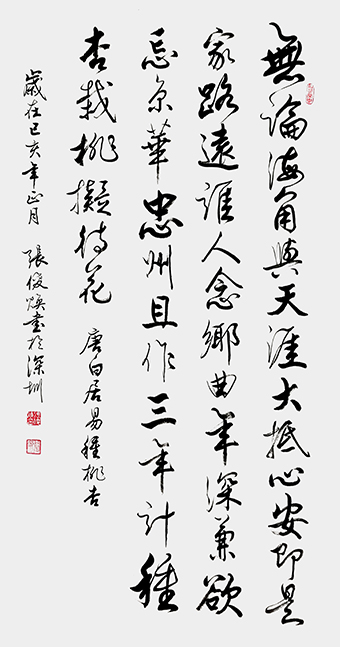 無論海角與天涯大抵心安即是
家路遠誰人念鄉曲年深兼欲
忘京華忠州且作三年計種
杏栽桃擬待花
唐白居易種桃杏
歲在己亥年正月
張俊煥書於深圳